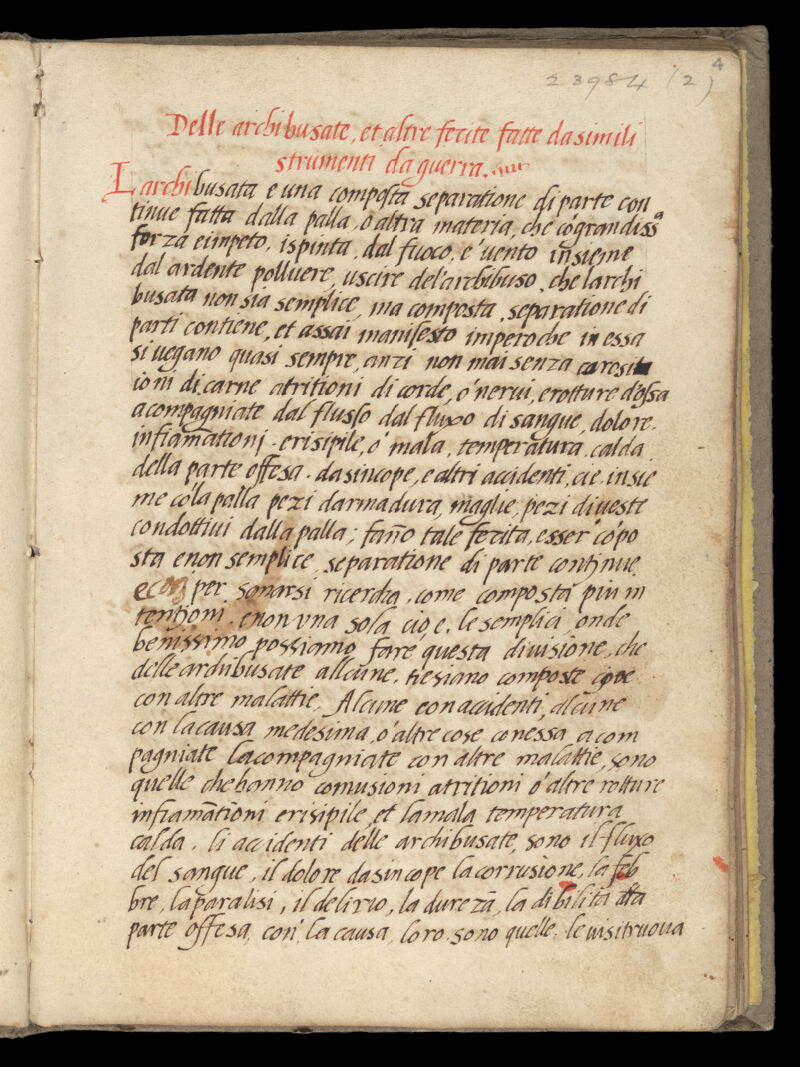 23984 (2) 4
Delle archibusate, et altre ferite fatte da simili
strumenti da guerra.
Larchibusata e una composta separatione di parte con
tinue fatta dalla palla, o altra materia, che cõ grandissª
forza e impeto, ispinta, dal fuoco, e' vento insieme
dal ardente polluere, uscire del'archibuso, che larchi
busata non sia semplice, ma composta, separatione di
parti contiene, et assai manifesto imperoche in essa
si vegano quasi sempre, anzi non mai senza
ioni di carne atritioni di corde, o' nerui, e rotture d'ossa
acompagniate dal flusso dal fluxo di sangue, dolore.
infiamãtionj. erisipile, o' mala, temperatura, calda
della parte offesa. da sincope, e altri accidenti, cie. insie
me cõ la palla pezi darmadura, maglie, pezi di veste
condottivi dalla palla; fañó tale ferita, esser cõpo
sta e non semplice, separatione di parte continue
e per, sanarsi ricercha, come composta piu in
tentioni. e non vna sola cio, e. le semplici, onde
benissimo possiamo fare questa divisione, che
delle archibusate allcune, ne siano composte
con altre malattie, Alcune con accidenti, alcune
con la causa medesima, o' altre cose con essa acom
pagniate Lacompagniate con altre malattie, sono
quelle che hanno contusioni atritioni o' altre rotture
infiamãtioni erisipile, et lamala temperatura
calda. li accidenti delle archibusate, sono il fluxo
del sangue, il dolore da sincope la corrusione, la feb
bre, la paralisi, il delirio, la durezã, la dibilita dla
parte offesa, con' la causa, loro. sono quelle, le vi si truova